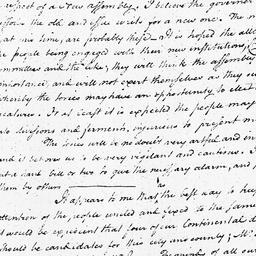 aspect of a new assembly. I believe the governor
the old and issue writs for a new one. The
at this time, are probably these. It is hoped the
the people being engaged with their new institutions,
committees and the like, they will think the assembly
unimportant and will not exert themselves as they
whereby the tories may have an opportunity to elect
creature. Or at least it is expected the people may
into divisions and ferments, injurious to present
The tories will no doubt very artful and in
and it behoves us to be very vigilant and cautious. I
out a hand bill or two to give the necessary alarm, and
them by others
It appears to me that the best way to keep
attention of the people united and fixed to the same
it would be expedient that four of our Continental d
should be candidates for this city and county;
of all our